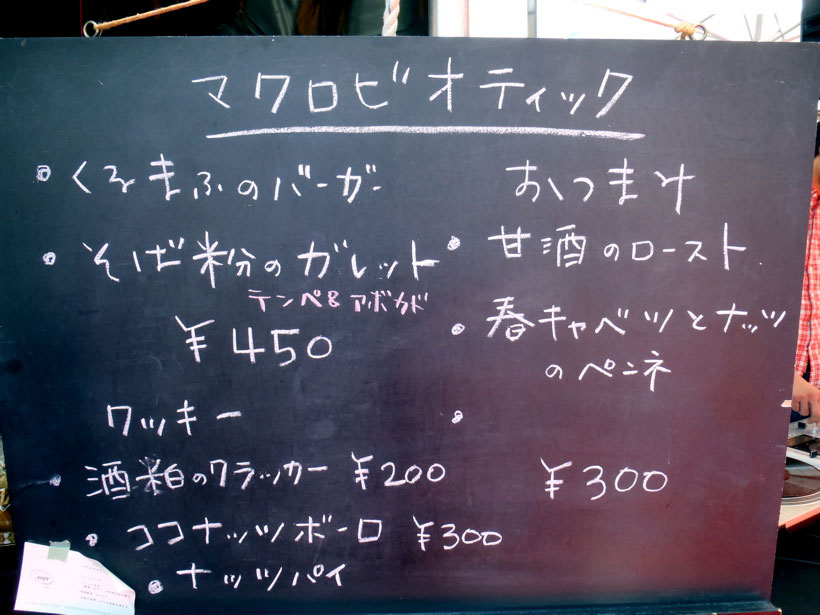 マクロビオティック
・くるまふのバーガー
・そば粉のガレット
テンペ&アボカド
¥450
クッキー
・酒粕のクラッカー ¥200
・ココナッツボーロ ¥300
・ナッツパイ
おつまみ
・甘酒のロースト
・春キャベツとナッツ
のペンネ
・
¥300